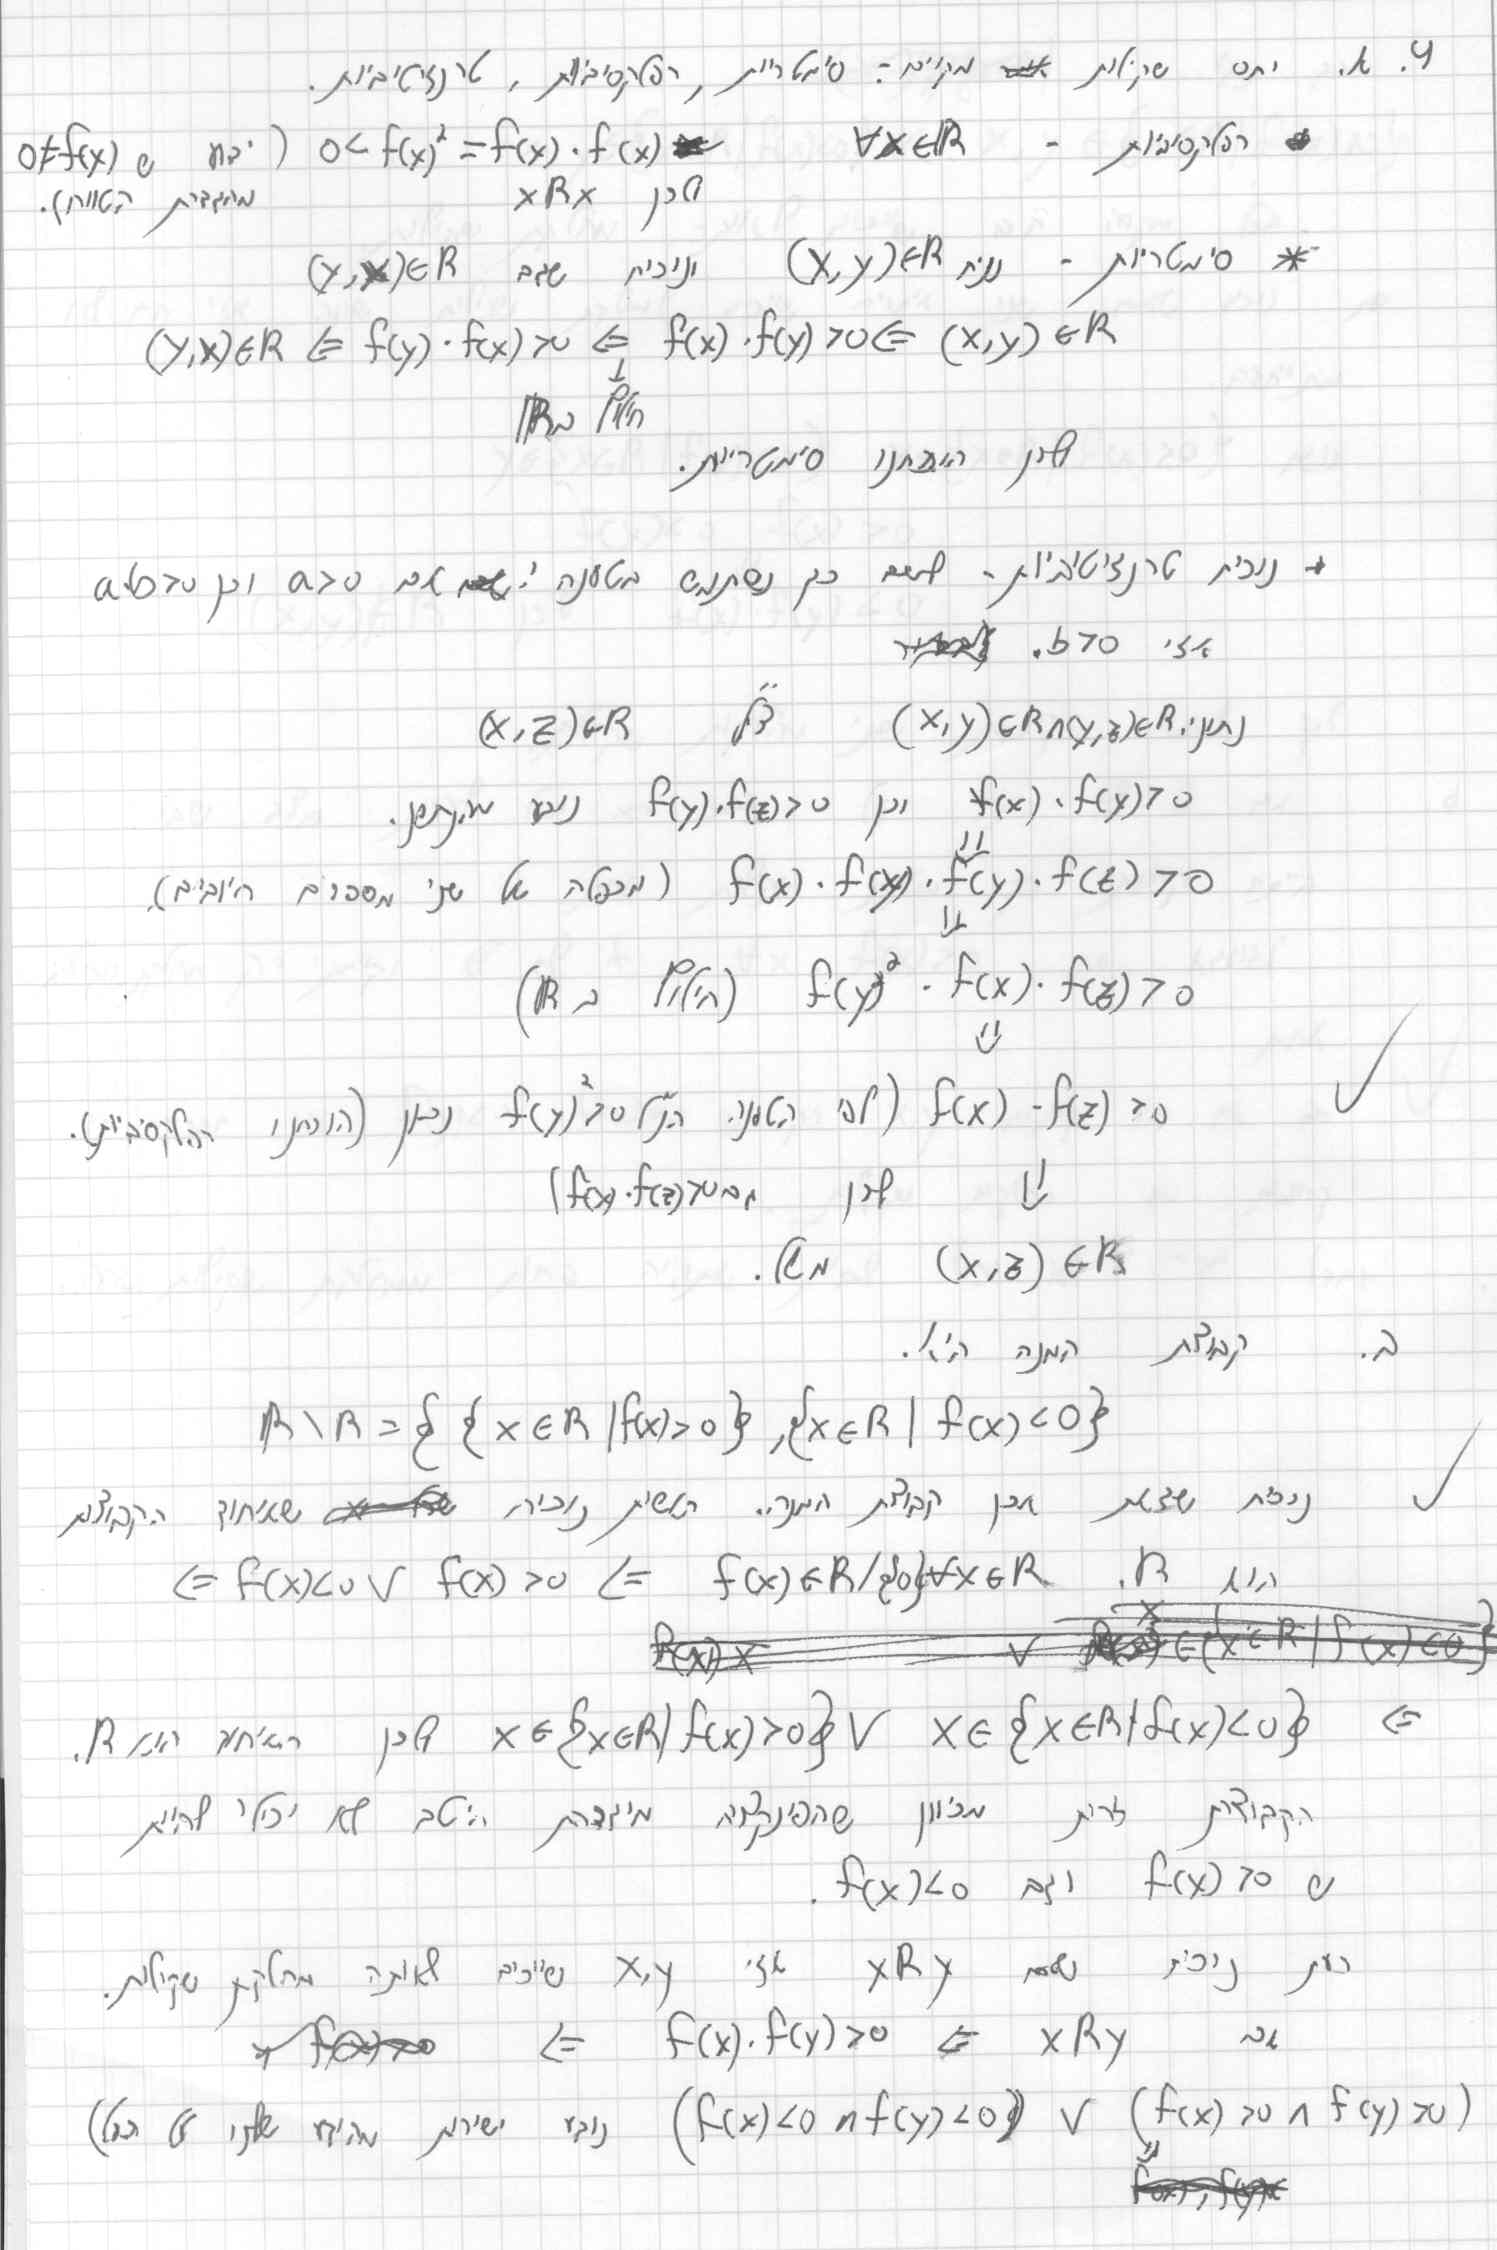 4. א. יחס שקילות מקיים: סימטריות, רפלקסיביות, טרנזיטיביות.
* רפלקסיביות - ∀x∈ℝ f(x)·f(x) = f(x)² > 0 (ידוע ש f(x)≠0
מהגדרת הטווח). לכן xRx
* סימטריות - נניח (x,y)∈R ונוכיח שגם (y,x)∈R
(x,y)∈R ⇐ f(x)·f(y)>0 ⇐ f(y)·f(x)>0 ⇐ (y,x)∈R
↓
חילוף בℝ
לכן הוכחנו סימטריות.
* נוכיח טרנזיטיביות - לשם כך נשתמש בטענה: אם a>0 וכן a·b>0
אזי b>0.
נתון: (x,y)∈R∩(y,z)∈R צ"ל (x,z)∈R
f(x)·f(y)>0 וכן f(y)·f(z)>0 נובע מהנתון.
⇓
f(x)·f(y)·f(y)·f(z)>0 (מכפלה של שני מספרים חיוביים).
⇓
f(y)²·f(x)·f(z)>0 (חילוף ב ℝ)
⇓
f(x)·f(z)>0 (לפי הטענה הנ"ל f(y)²>0 נכון (הוכחנו רפלקסיביות).
⇓ לכן גם f(x)·f(z)>0)
(x,z)∈R מש"ל.
ב. קבוצת המנה היא:
ℝ\R = { {x∈R | f(x)>0}, {x∈R | f(x)<0}
נוכיח שזאת אכן קבוצת המנה. ראשית נוכיח שאיחוד הקבוצות
הוא R. ∀x∈R f(x)∈R/{0} ⇐ f(x)>0 ∨ f(x)<0 ⇐
⇐ x∈{x∈R | f(x)<0} ∨ x∈{x∈R | f(x)>0} לכן האיחוד הוא R.
הקבוצות זרות מכיוון שהפונקציה מוגדרת היטב לא יכול להיות
ש f(x)>0 וגם f(x)<0.
כעת נוכיח שאם xRy אזי x,y שייכים לאותה מחלקת שקילות.
אם xRy ⇐ f(x)·f(y)>0 ⇐
(f(x)>0 ∩ f(y)>0) ∨ (f(x)<0 ∩ f(y)<0) נובע ישירות מהידע שלנו על כפל)